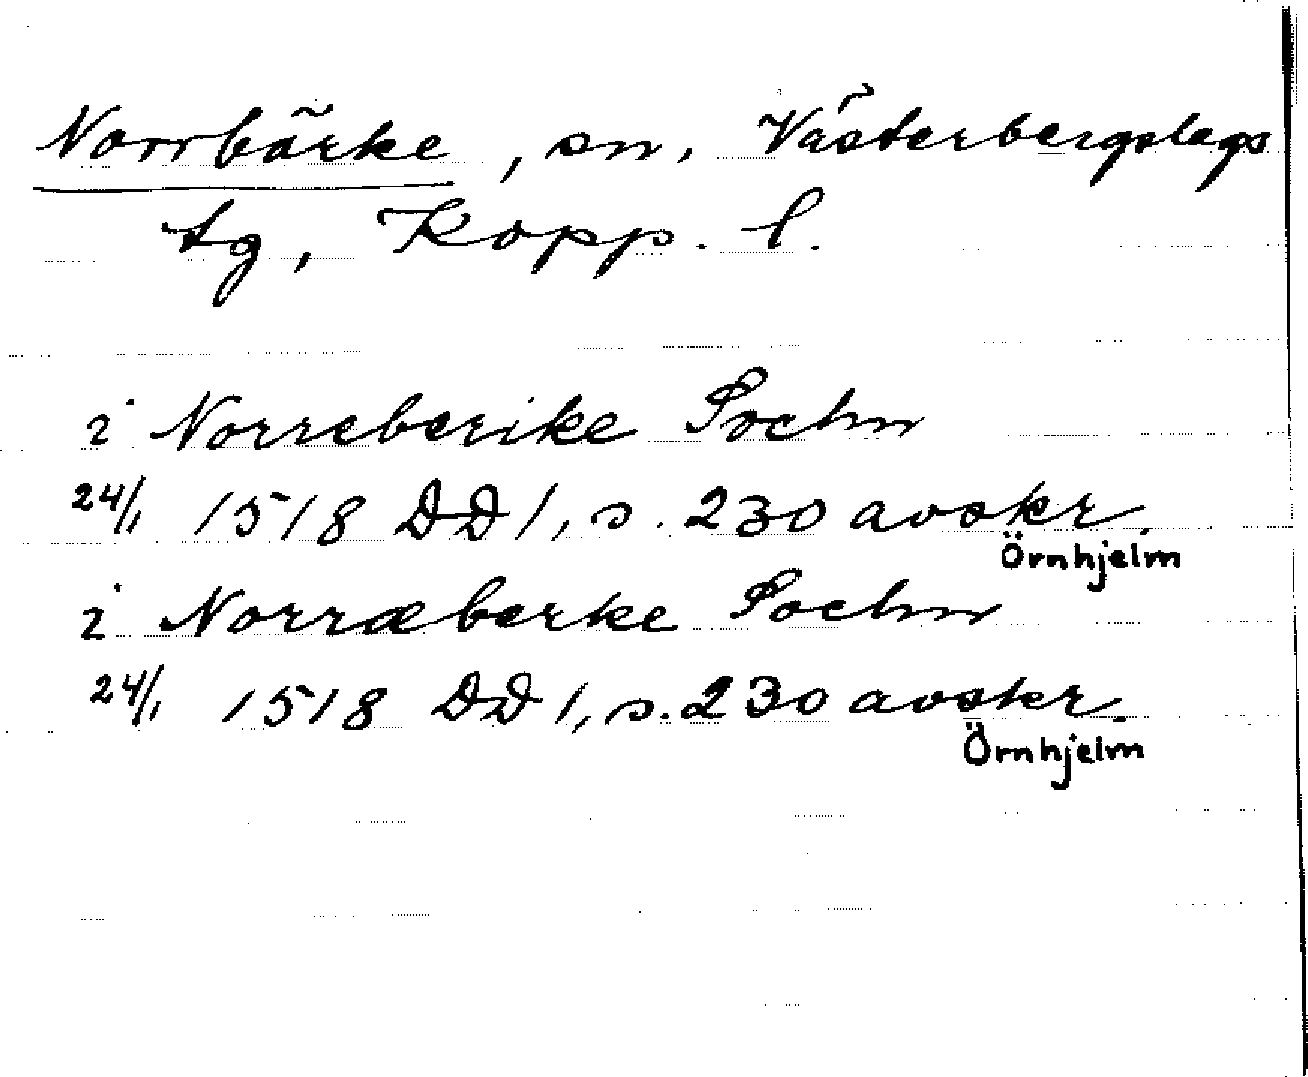 Norrbärke, sn, Västerbergslags
tg, Kopp. l.
i Norreberike Sochn
24/1 1518 DD 1, s. 230 avskr.
Örnhjelm
i Norræberke Sochn
24/1 1518 DD 1, s. 230 avskr.
Örnhjelm